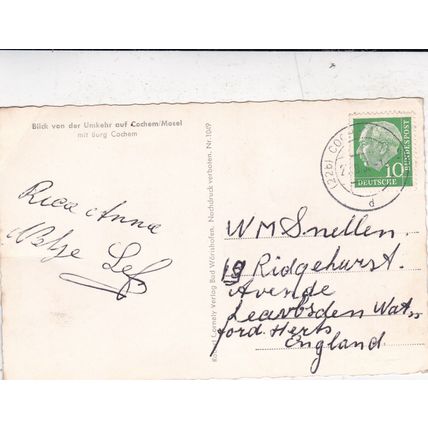 Blick von der Umkehr auf Cochem/Mosel
mit Burg Cochem
Rica Anna
Lefs
Cornely Verlag Bad Wörishofen. Nachdruck verboten. Nr. 1049
(22b) COC
d
10
DEUTSCHE
BUNDESPOST
WM Snellen.
19 Ridgehurst.
Avende
Leavbsden Wat
ford. Herts
England.